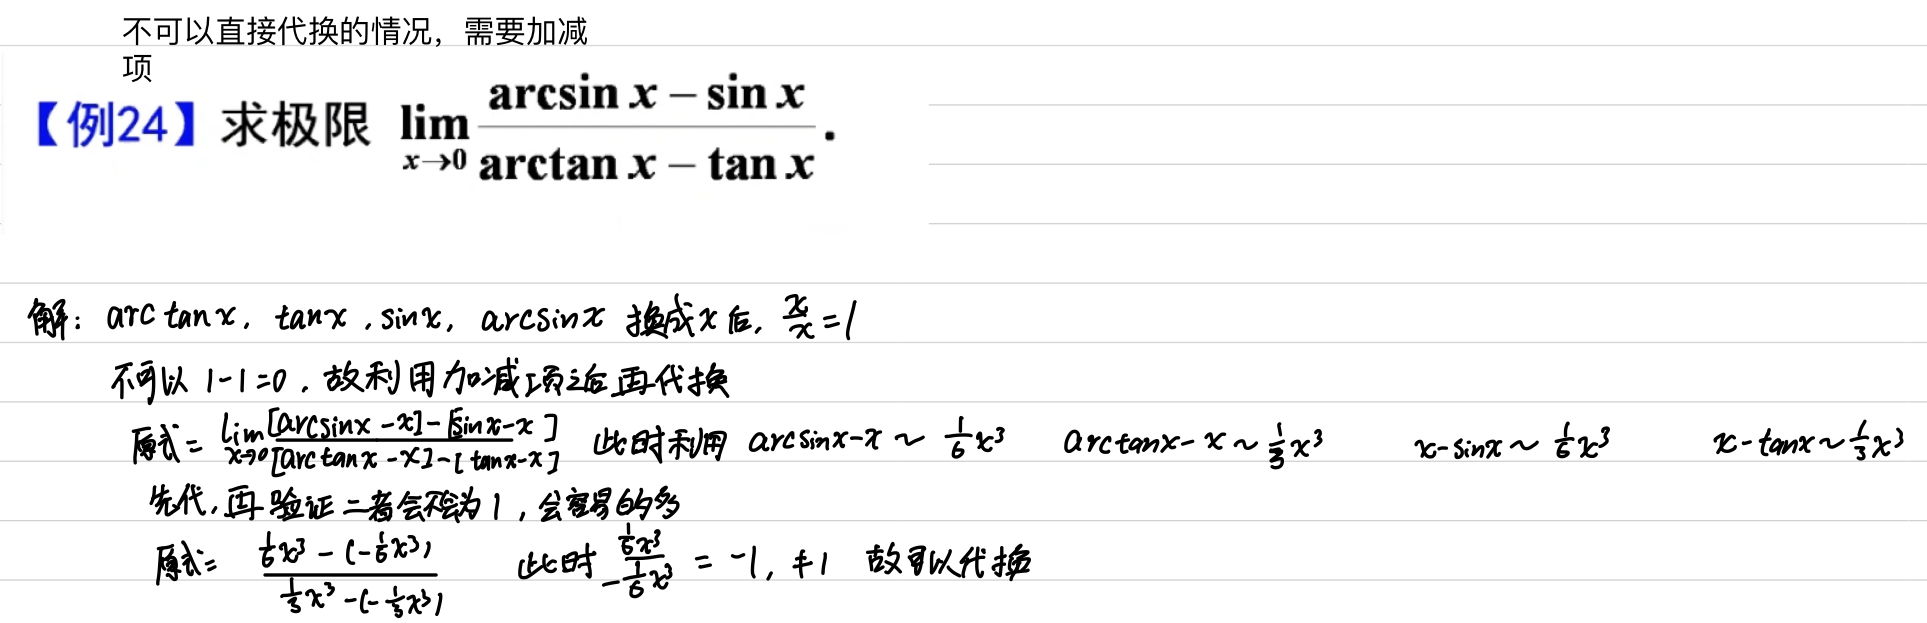 不可以直接代换的情况，需要加减
项
【例24】求极限 lim_{x→0} (arcsin x − sin x)/(arctan x − tan x).
解: arctanx, tanx, sinx, arcsinx 换成x后, x/x=1
不可以 1-1=0, 故利用加减项之后再代换
原式= lim_{x→0} ([arcsinx-x]-[sinx-x])/([arctanx-x]-[tanx-x]) 此时利用 arcsinx-x ~ 1/6 x³ arctanx-x ~ 1/3 x³ x-sinx ~ 1/6 x³ x-tanx ~ 1/3 x³
先代,再验证二者会不会为1, 会容易的多
原式= (1/6 x³ - (-1/6 x³))/(1/3 x³ - (-1/3 x³)) 此时 (1/6 x³)/(-1/6 x³) = -1, ≠1 故可以代换